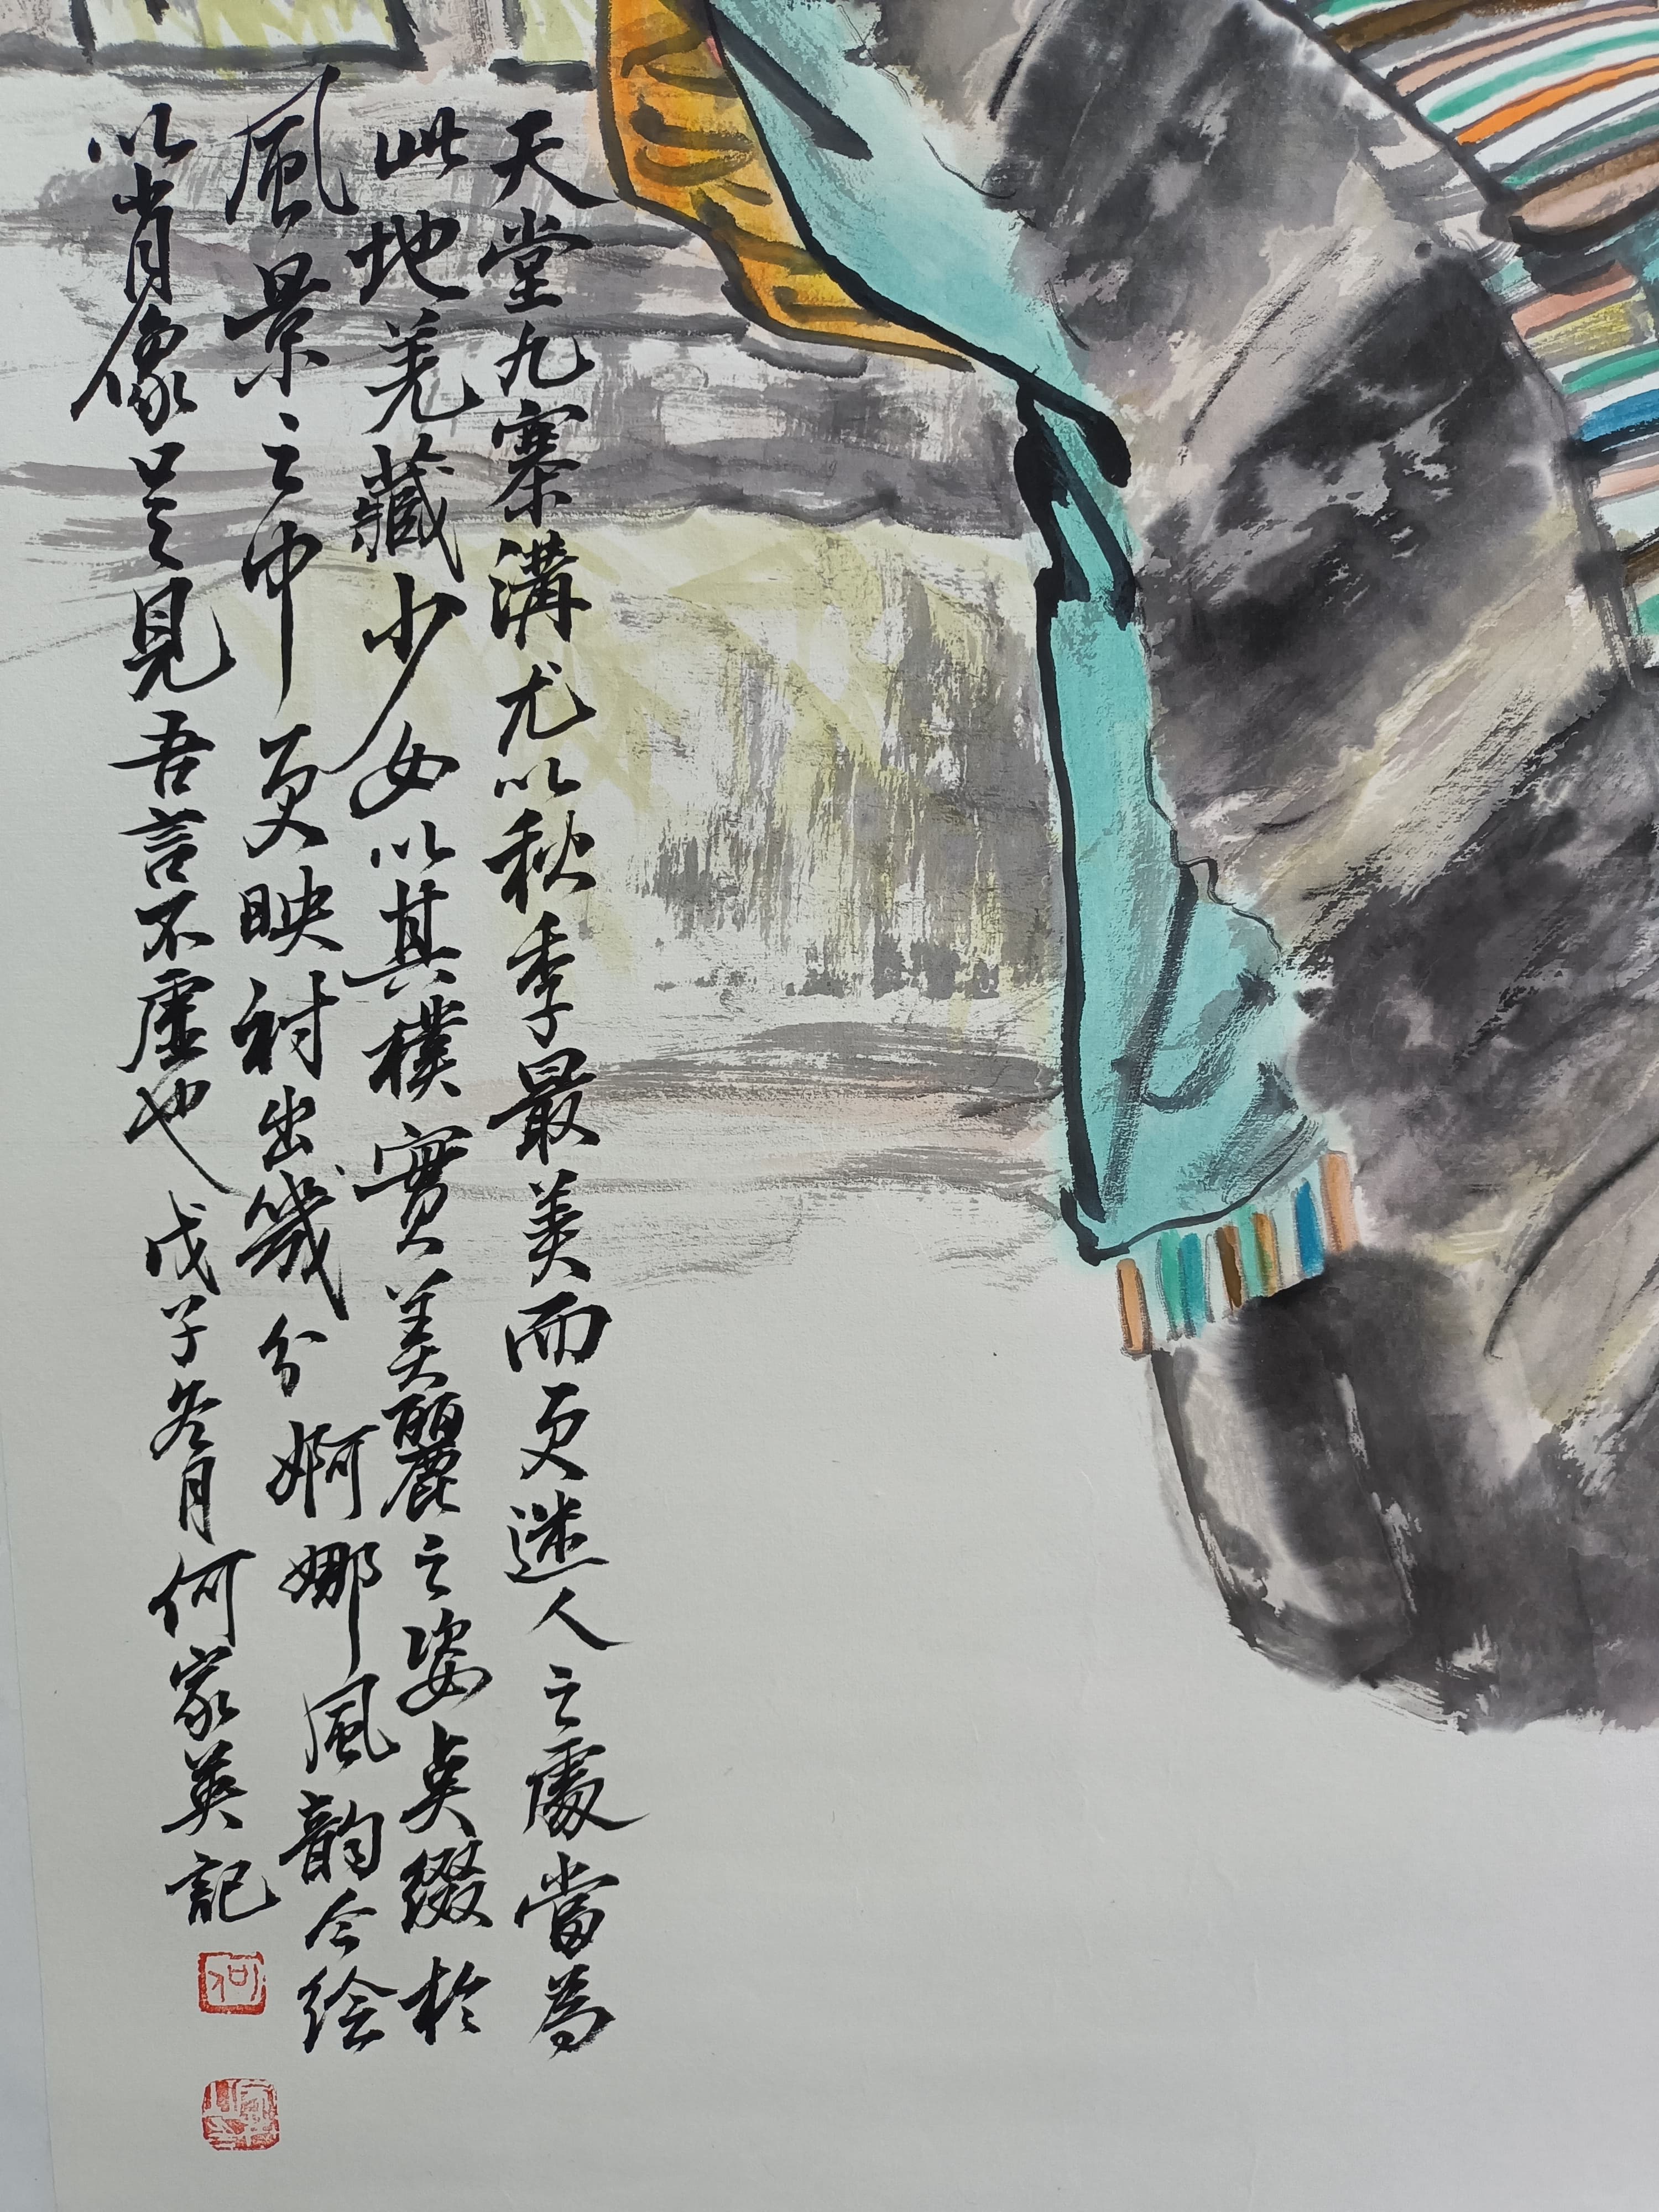 天堂九寨溝尤以秋季最美而更迷人之處當為
此地羌藏少女以其樸實美麗之姿点缀於
風景之中更映衬出幾分婀娜風韵今绘
以肖像足見吾言不虛也戊子冬月何家英記
何